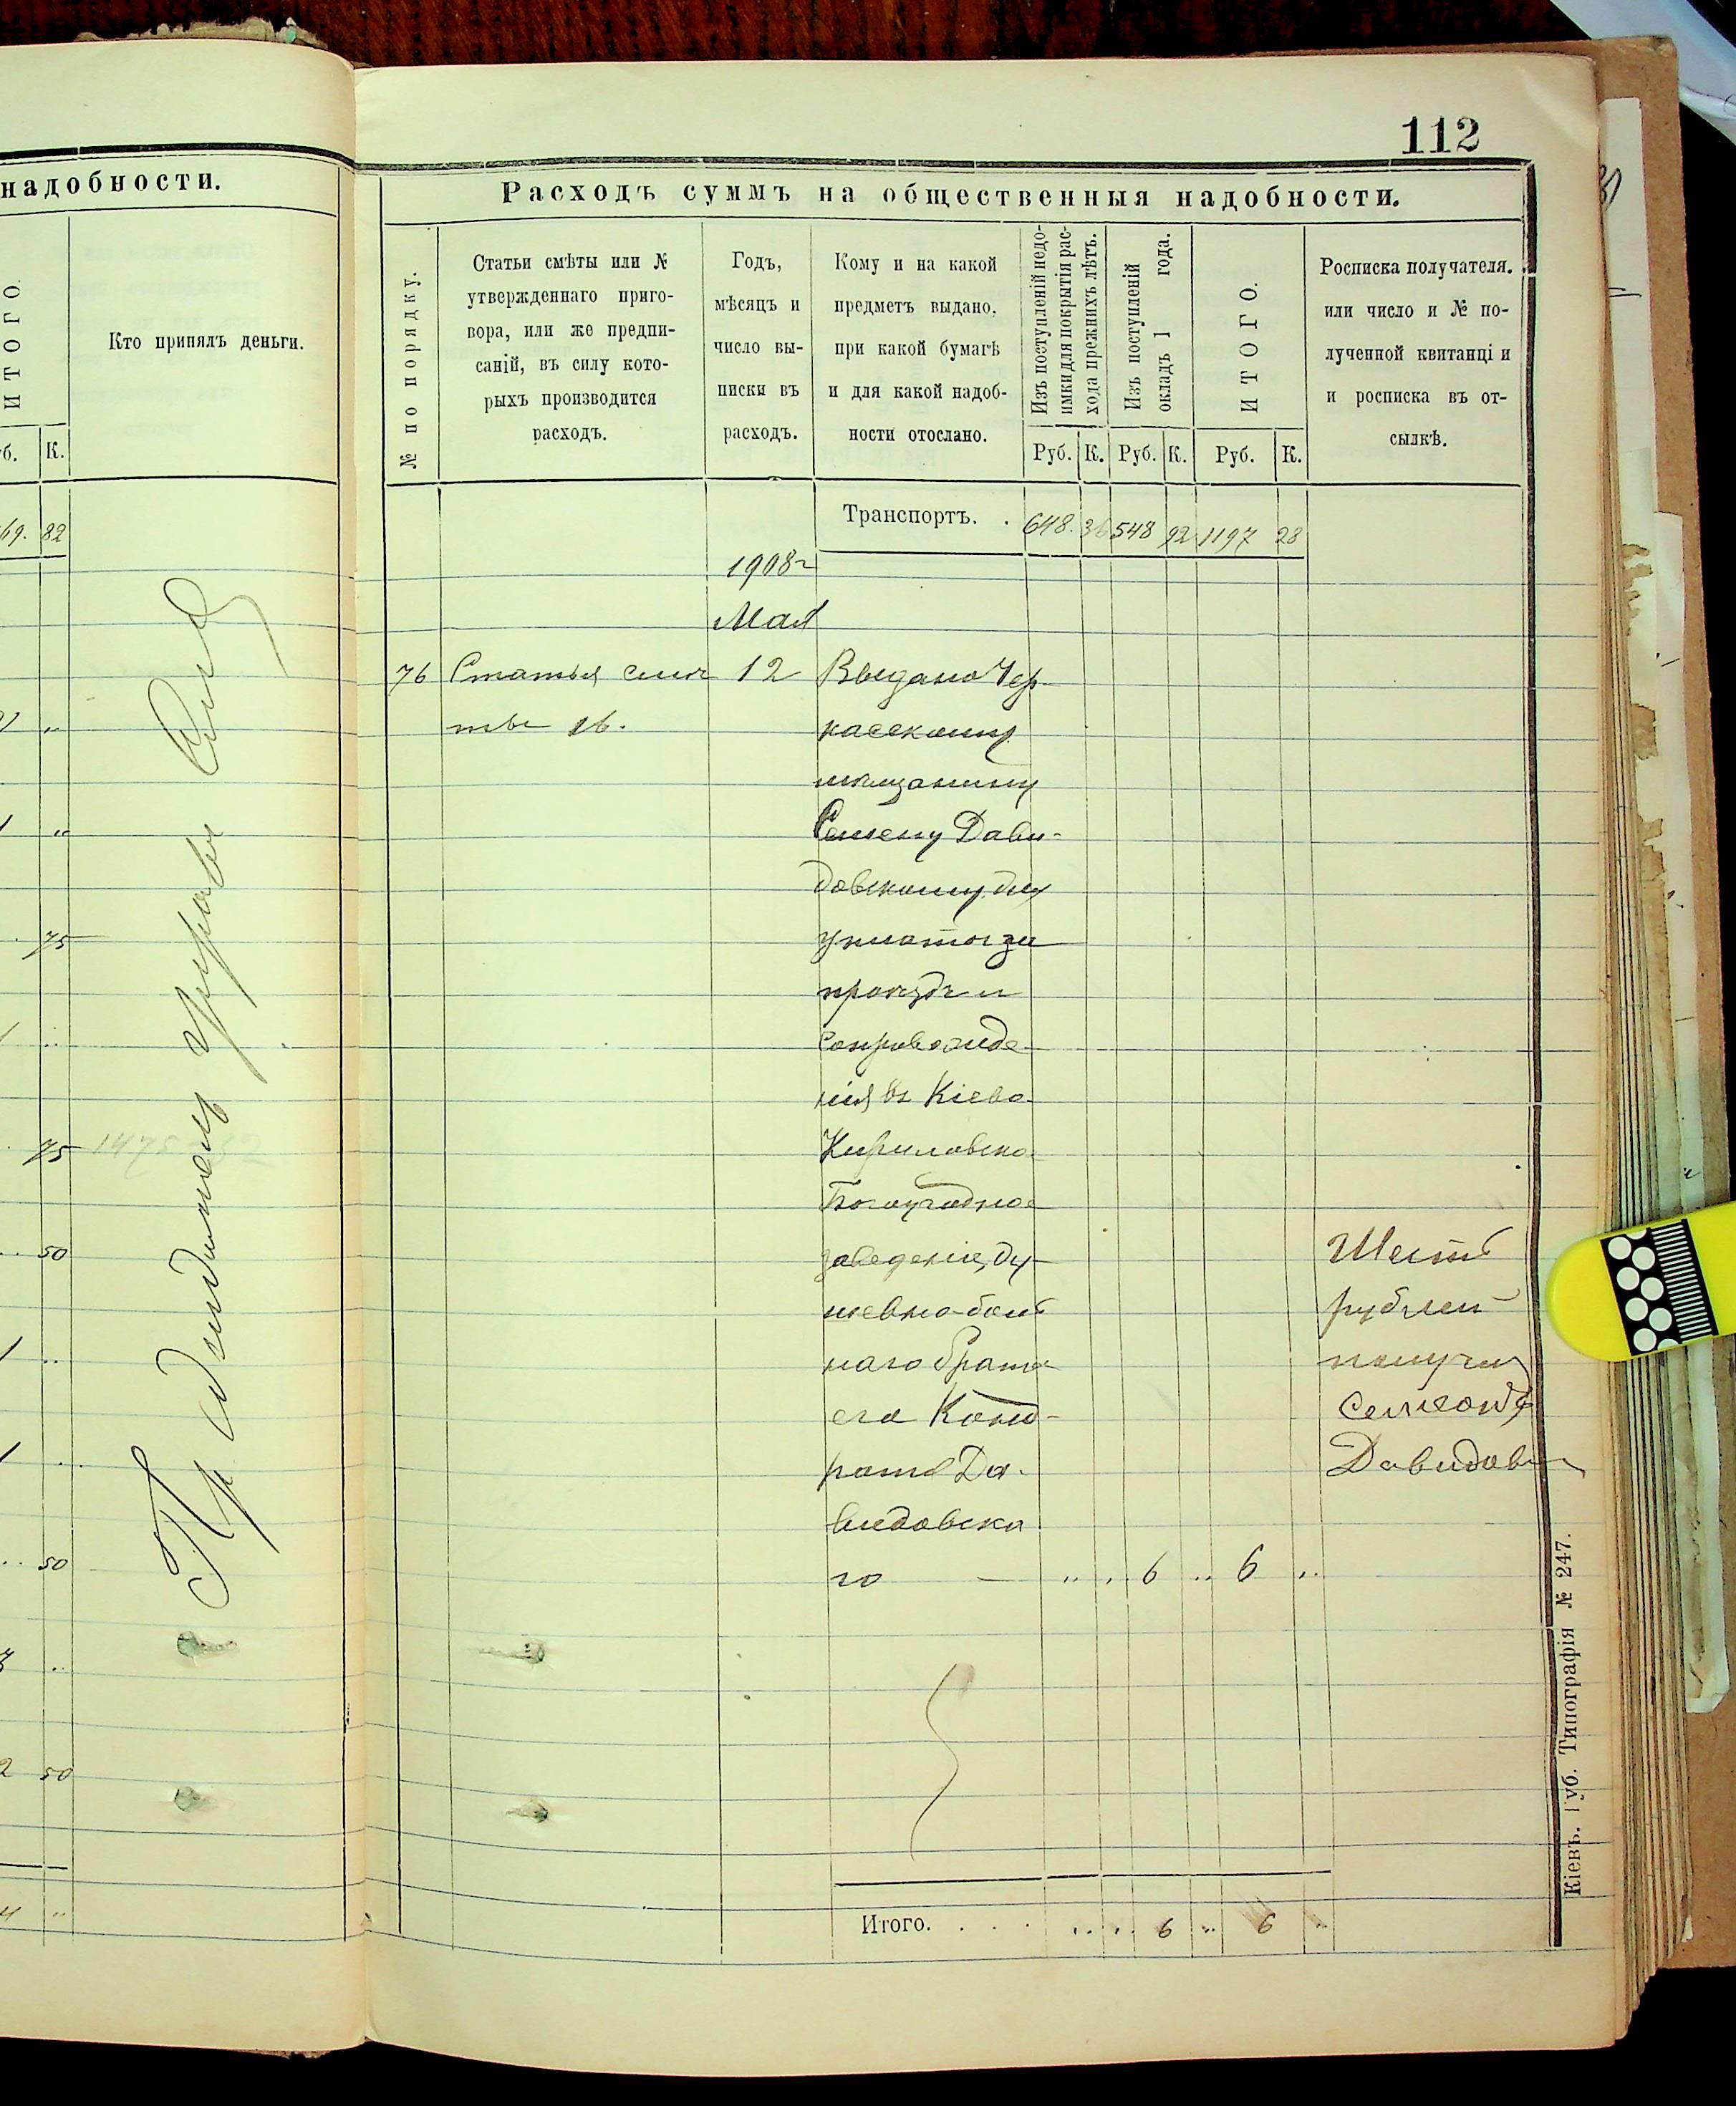 112
надобности.
ИТОГО.
Кто принялъ деньги.
б. К.
69. 82
75
75
1475 82
50
50
2 50
Расходъ суммъ на общественныя надобности.
№ по порядку.
Статьи смѣты или №
утвержденнаго приго-
вора, или же предпи-
саній, въ силу кото-
рыхъ производится
расходъ.
Годъ,
мѣсяцъ и
число вы-
писки въ
расходъ.
Кому и на какой
предметъ выдано,
при какой бумагѣ
и для какой надоб-
ности отослано.
Изъ поступленій недо-
имки для покрытія рас-
хода прежнихъ лѣтъ.
Изъ поступленій
окладъ 1 года.
ИТОГО.
Росписка получателя.
или число и № по-
лученной квитанціи
и росписка въ от-
сылкѣ.
Руб. К. Руб. К. Руб. К.
Транспортъ. . 648. 36 548 92 1197 28
1908 г
Мая
76 Статья смѣ 12 Выдано Чер-
ты 16. касскому
мѣщанину
Семену Дави-
довскому для
уплаты за
проѣздъ и
сопровожде
нія въ Кіево
Кириловско
Богоугодное
заведеніе, ду-
шевно-боль
наго брата
его Конд-
рата Да-
видовска
го — " . 6 .. 6 ..
Шесть
рублей
получил
Семеонъ
Давидов
Итого. . . . .. .. 6 .. 6 ..
Кіевъ. Губ. Типографія № 247.